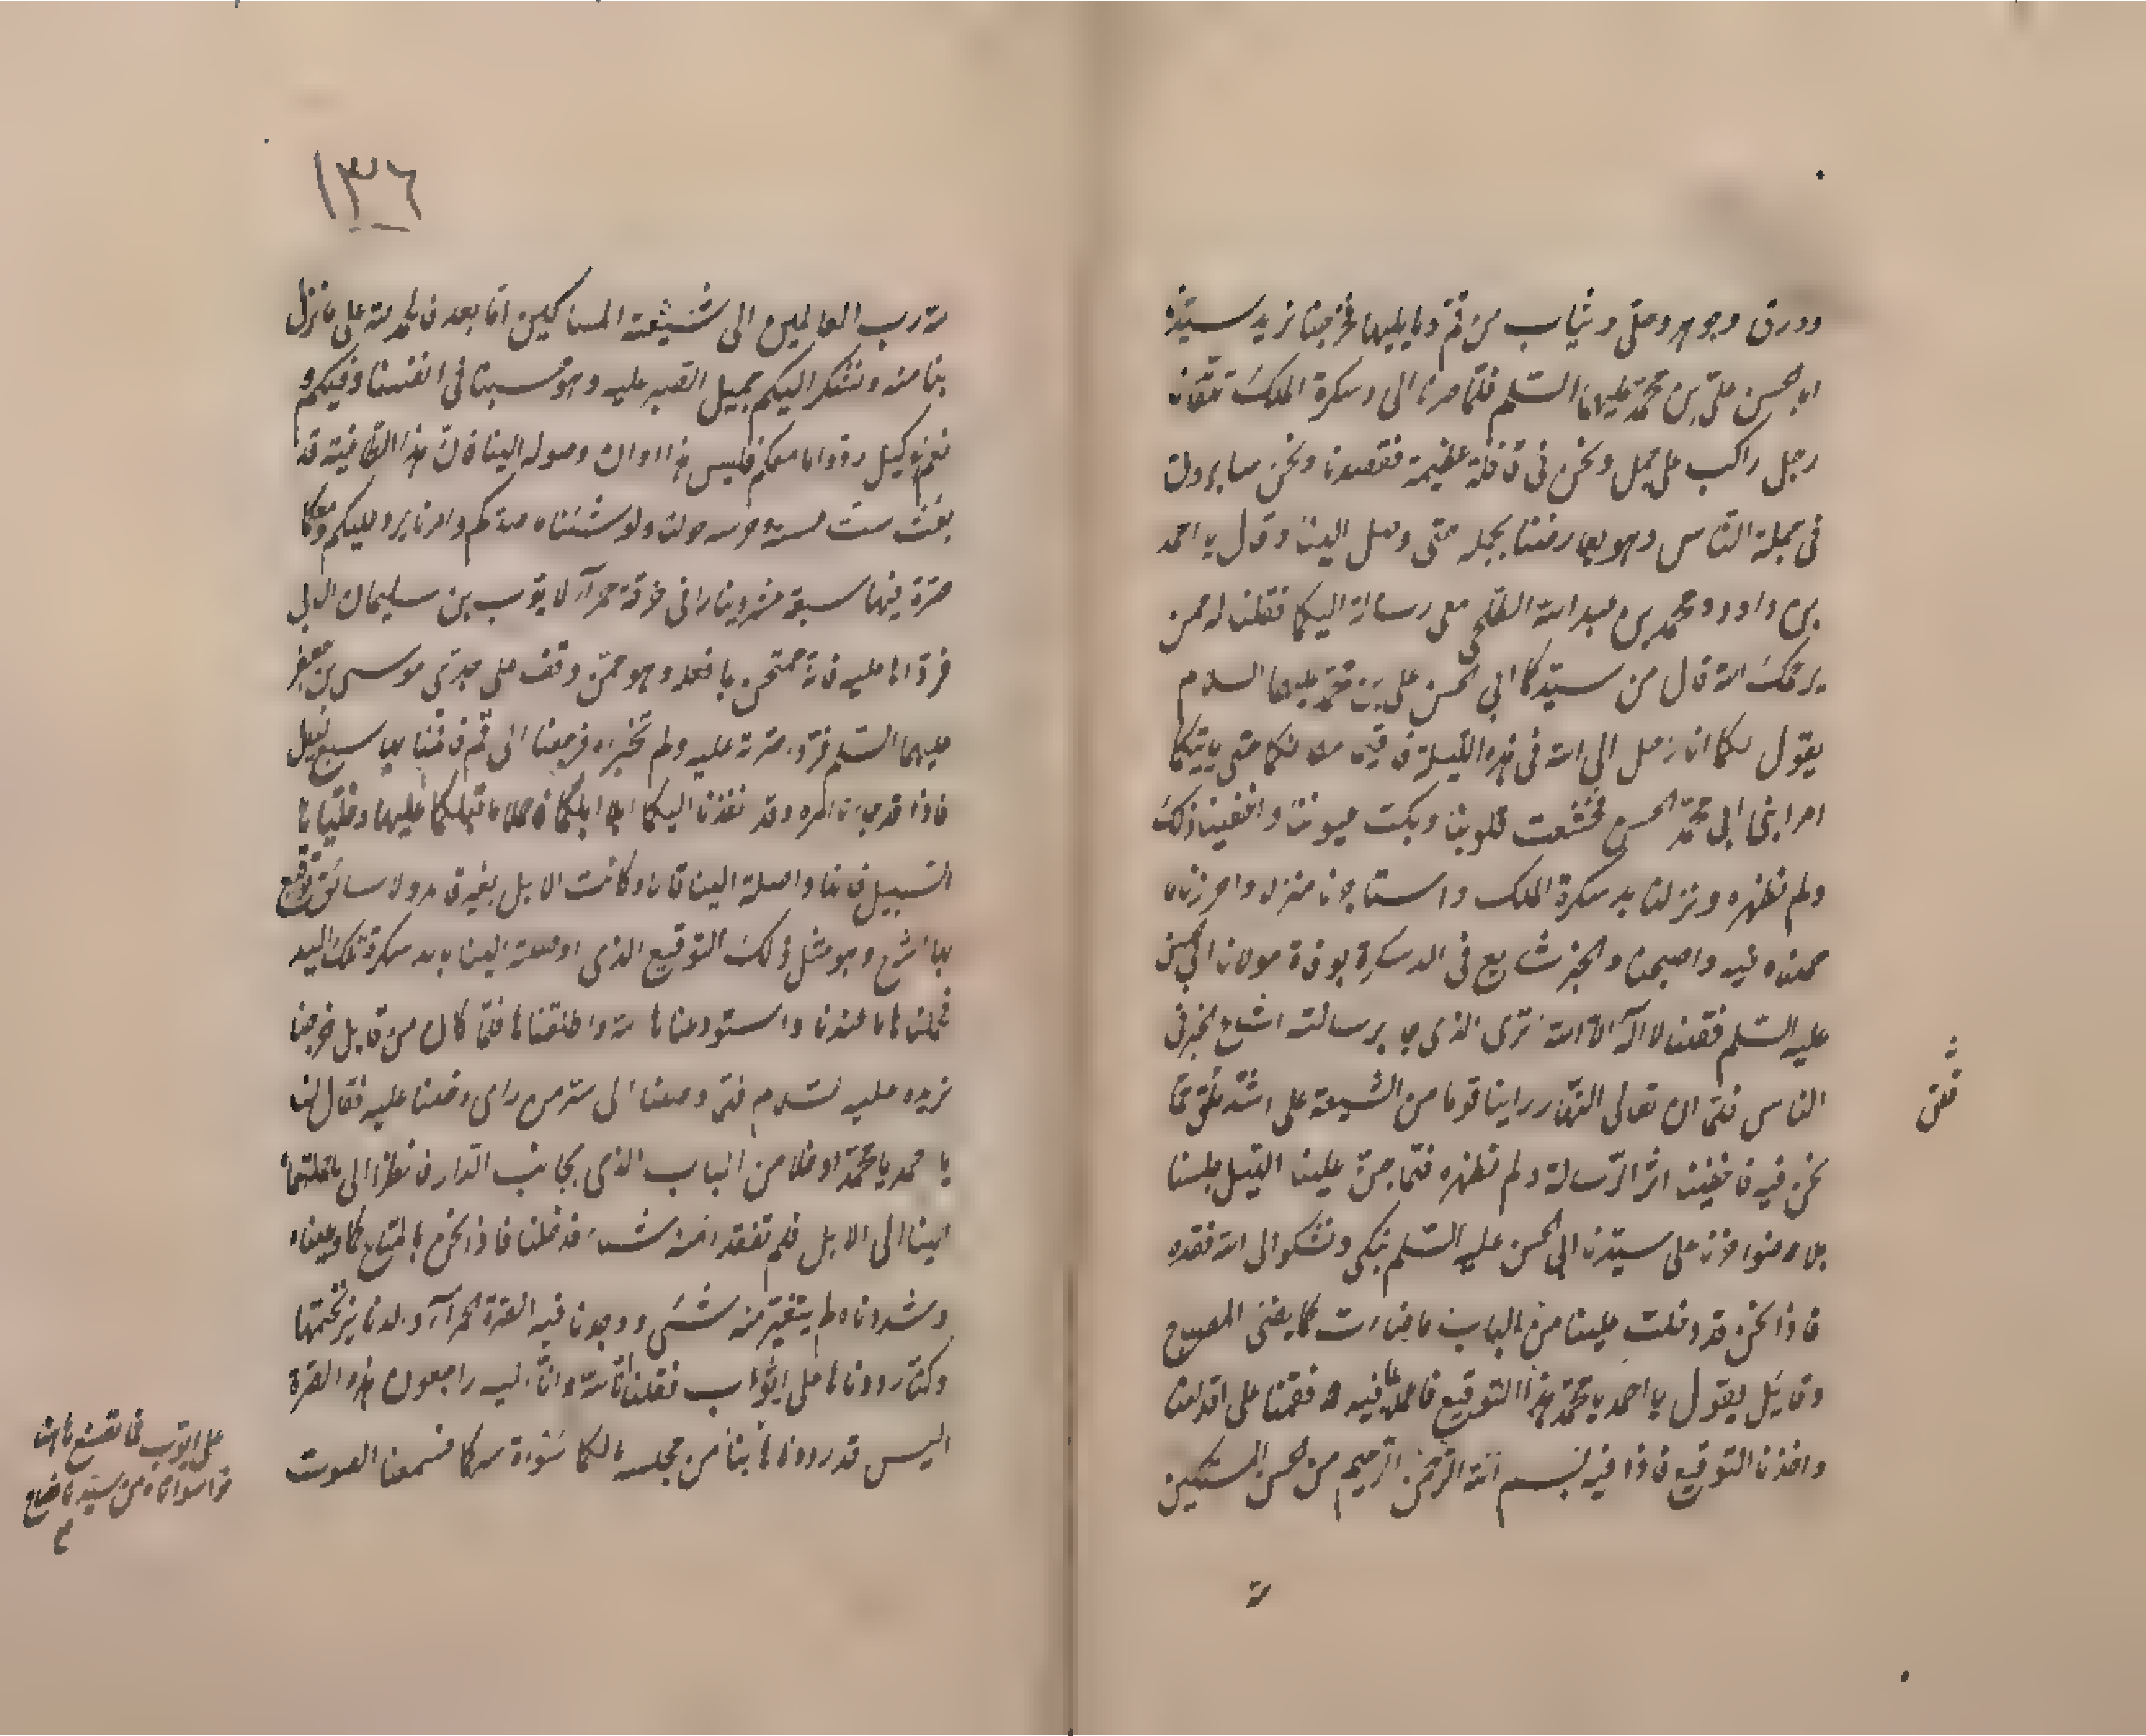 وورق وجوهر وحلى وثياب من قم وما يليها فخرجنا نريد سيدنا
ابا الحسن على بن محمد عليهما السلم فلما صرنا الى دسكرة الملك تلقانا
رجل راكب على جمل ونحن فى قافلة عظيمة فقصدنا ونحن سايرون
فى جملة الناس وهو يعارضنا بجمله حتى وصل الينا وقال يا احمد
بن داود ومحمد بن عبد الله الطلحى معى رسالة اليكما فقلنا له ممن
يرحمك الله قال من سيدكما ابى الحسن على بن محمد عليهما السلام
يقول لكما انا راحل الى الله فى هذه الليلة فاقيما مكانكما حتى ياتيكما
امر ابنى ابى محمد الحسن فخشعت قلوبنا وبكت عيوننا واخفينا ذلك
ولم نظهره ونزلنا بدسكرة الملك واستاجرنا منزلا واحرزنا ما
حملناه فيه واصبحنا والخبر شايع فى الدسكرة بوفاة مولانا ابى الحسن
عليه السلم فقلنا لا اله الا الله ترى الذى جا برسالته اشاع الخبر فى
الناس فلما ان تعالى النهار راينا قوما من الشيعة على اشد قلق مما
نحن فيه فاخفينا اثر الرسالة ولم نظهره فلما جن علينا الليل جلسنا
بلا ضوء حزنا على سيدنا ابى الحسن عليه السلم نبكى ونشكوا الى الله فقده
فاذا نحن بيد قد دخلت علينا من الباب فاضاءت كما يضئ المصباح
وقايل يقول يا احمد يا محمد هذا التوقيع فاعملا بما فيه فقمنا على اقدامنا
واخذنا التوقيع فاذا فيه بسم الله الرحمن الرحيم من الحسن المستكين
لله
قلق
١٣٦
لله رب العالمين الى شيعته المساكين اما بعد فالحمد لله على ما نزل
بنا منه ونشكر اليكم جميل الصبر عليه وهو حسبنا فى انفسنا وفيكم و
نعم الوكيل ردوا ما معكم فليس هذا اوان وصوله الينا فان هذا الطاغية قد
بعث ولو شئنا ما صدكم وامرنا يرد عليكم ومعكما
صرة فيها سبعة عشر دينارا فى خرقة حمرآء لايوب بن سليمان الابى
فرداها عليه فانه ممتحن بما فعله وهو ممن وقف على جدى موسى بن جعفر
عليهما السلم فردا صرته عليه ولم تخبراه فرجعنا الى قم فاقمنا بها سبع ليال
فاذا قد جاءنا امره وقد نفذنا اليكما ابلا فاحملا ما قبلكما عليها وخليا لها
السبيل فانها واصلة الينا قالا وكانت الابل بغير قايد ولا سايق توقيع
بها الشرح وهو مثل ذلك التوقيع الذى اوصلته الينا بالدسكرة تلك اليد
فحملنا لها ما عندنا واستودعناها الله واطلقناها فلما كان من قابل خرجنا
نريده عليه السلام فلما وصلنا الى سر من راى دخلنا عليه فقال لنا
يا احمد يا محمد ادخلا من الباب الذى بجانب الدار فانظرا الى ما حملتماه
الينا على الابل فلم نفقد منه شيئا فدخلنا فاذا نحن بالمتاع كما وعيناه
وشددناه لم يتغير منه شئ ووجدنا فيه الصرة الحمرآء والدنانير بختمها
وكنا رددناها على ايوب فقلنا انا لله وانا اليه راجعون هذه الصرة
اليس قد رددناها من مجلسه مالكما فسمعنا الصوت
على ايوب فما نصنع هاهنا
فوا سواتاه من سيدنا فصاح